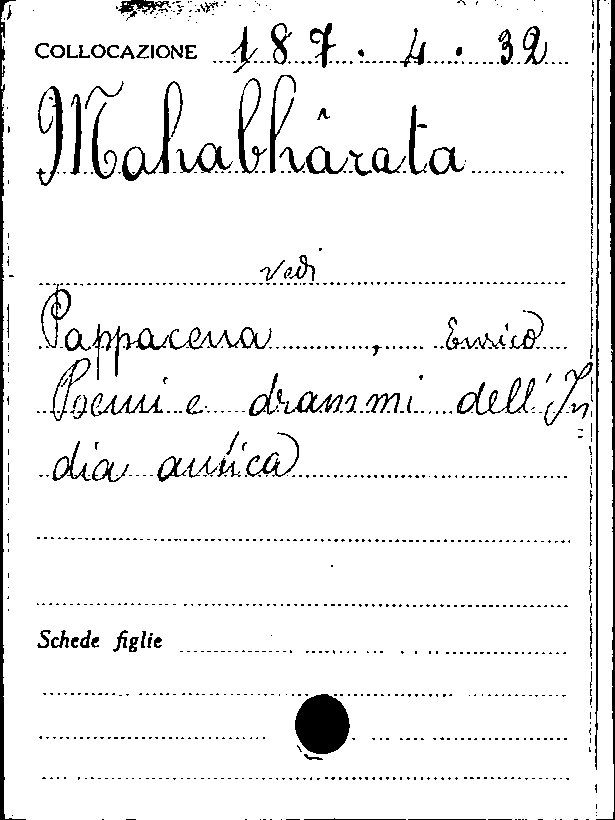 COLLOCAZIONE 187.4.32
Mahabhârata
vedi
Pappacena, Enrico
Poemi e drammi dell'In=
dia antica
Schede figlie